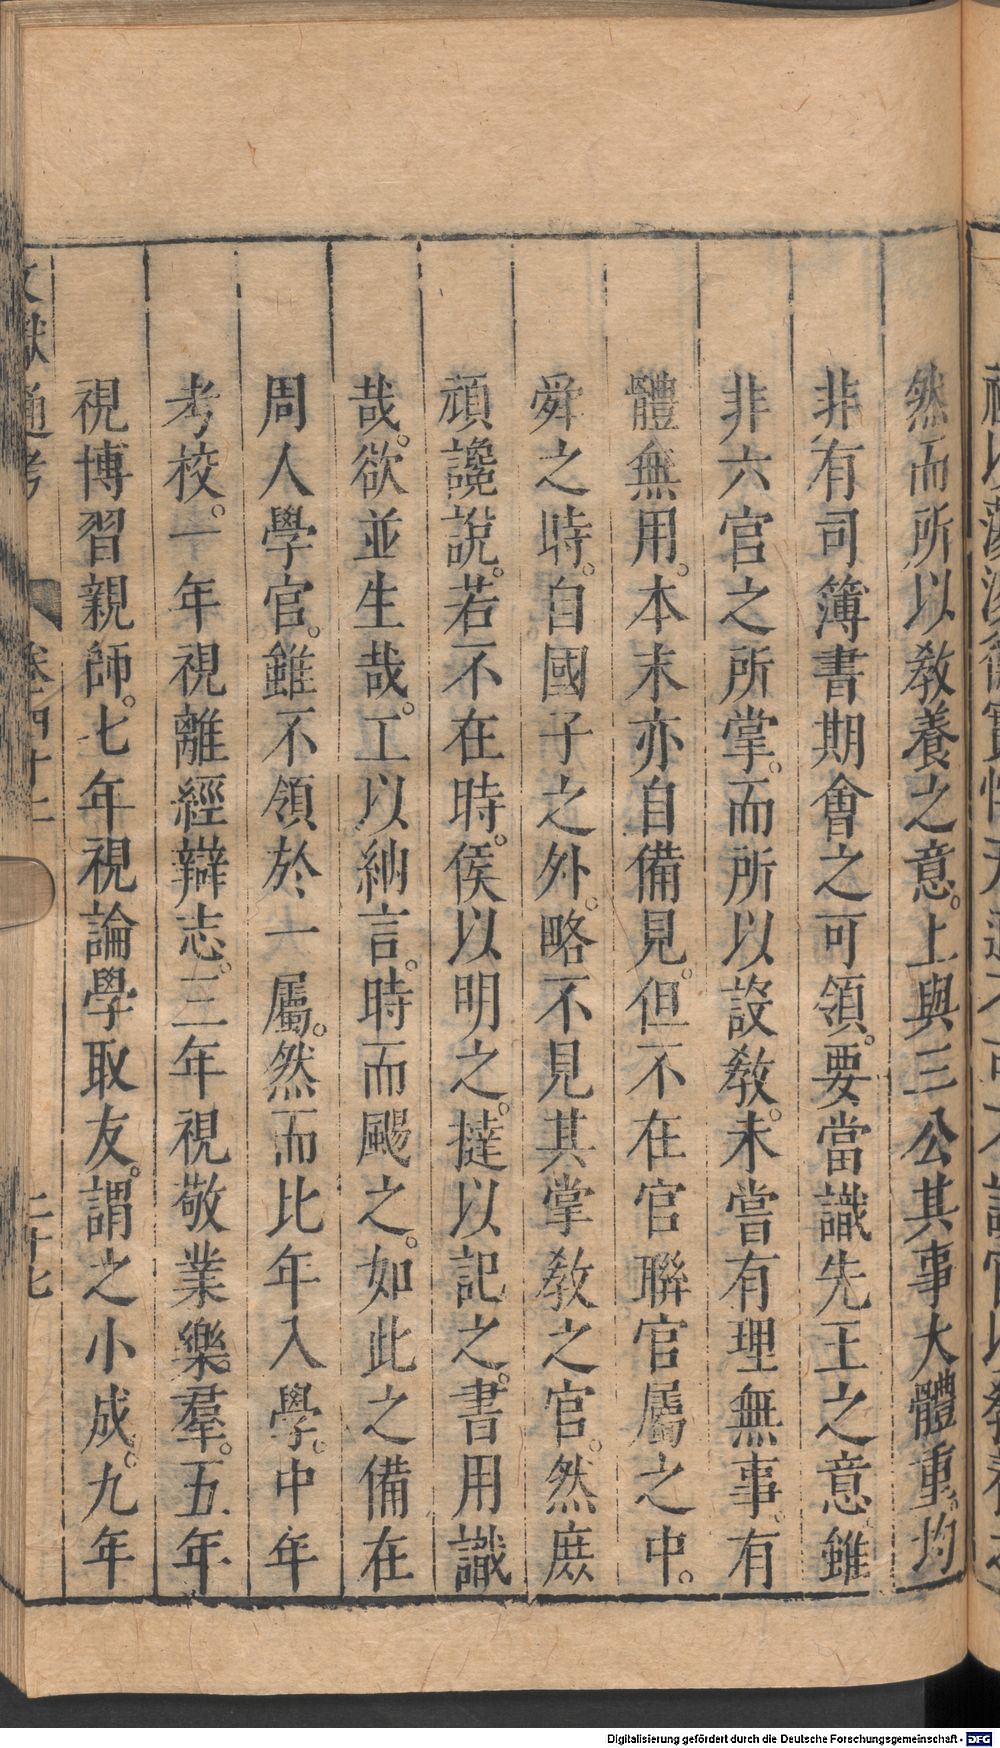 然而所以教養之意。上與三公其事大體重。均
非有司簿書期會之可領。要當識先王之意。雖
非六官之所掌。而所以設教。未嘗有理無事。有
體無用。本末亦自備見。但不在官聯官屬之中。
舜之時。自國子之外。略不見其掌教之官。然庶
頑讒說。若不在時。侯以明之。撻以記之。書用識
哉。欲並生哉。工以納言。時而颺之。如此之備在
周人學官。雖不領於一屬。然而比年入學。中年
考校。一年視離經辯志。三年視敬業樂羣。五年
視博習親師。七年視論學取友。謂之小成。九年
文獻通考 卷四十二 二十七
Digitalisierung gefördert durch die Deutsche Forschungsgemeinschaft - DFG